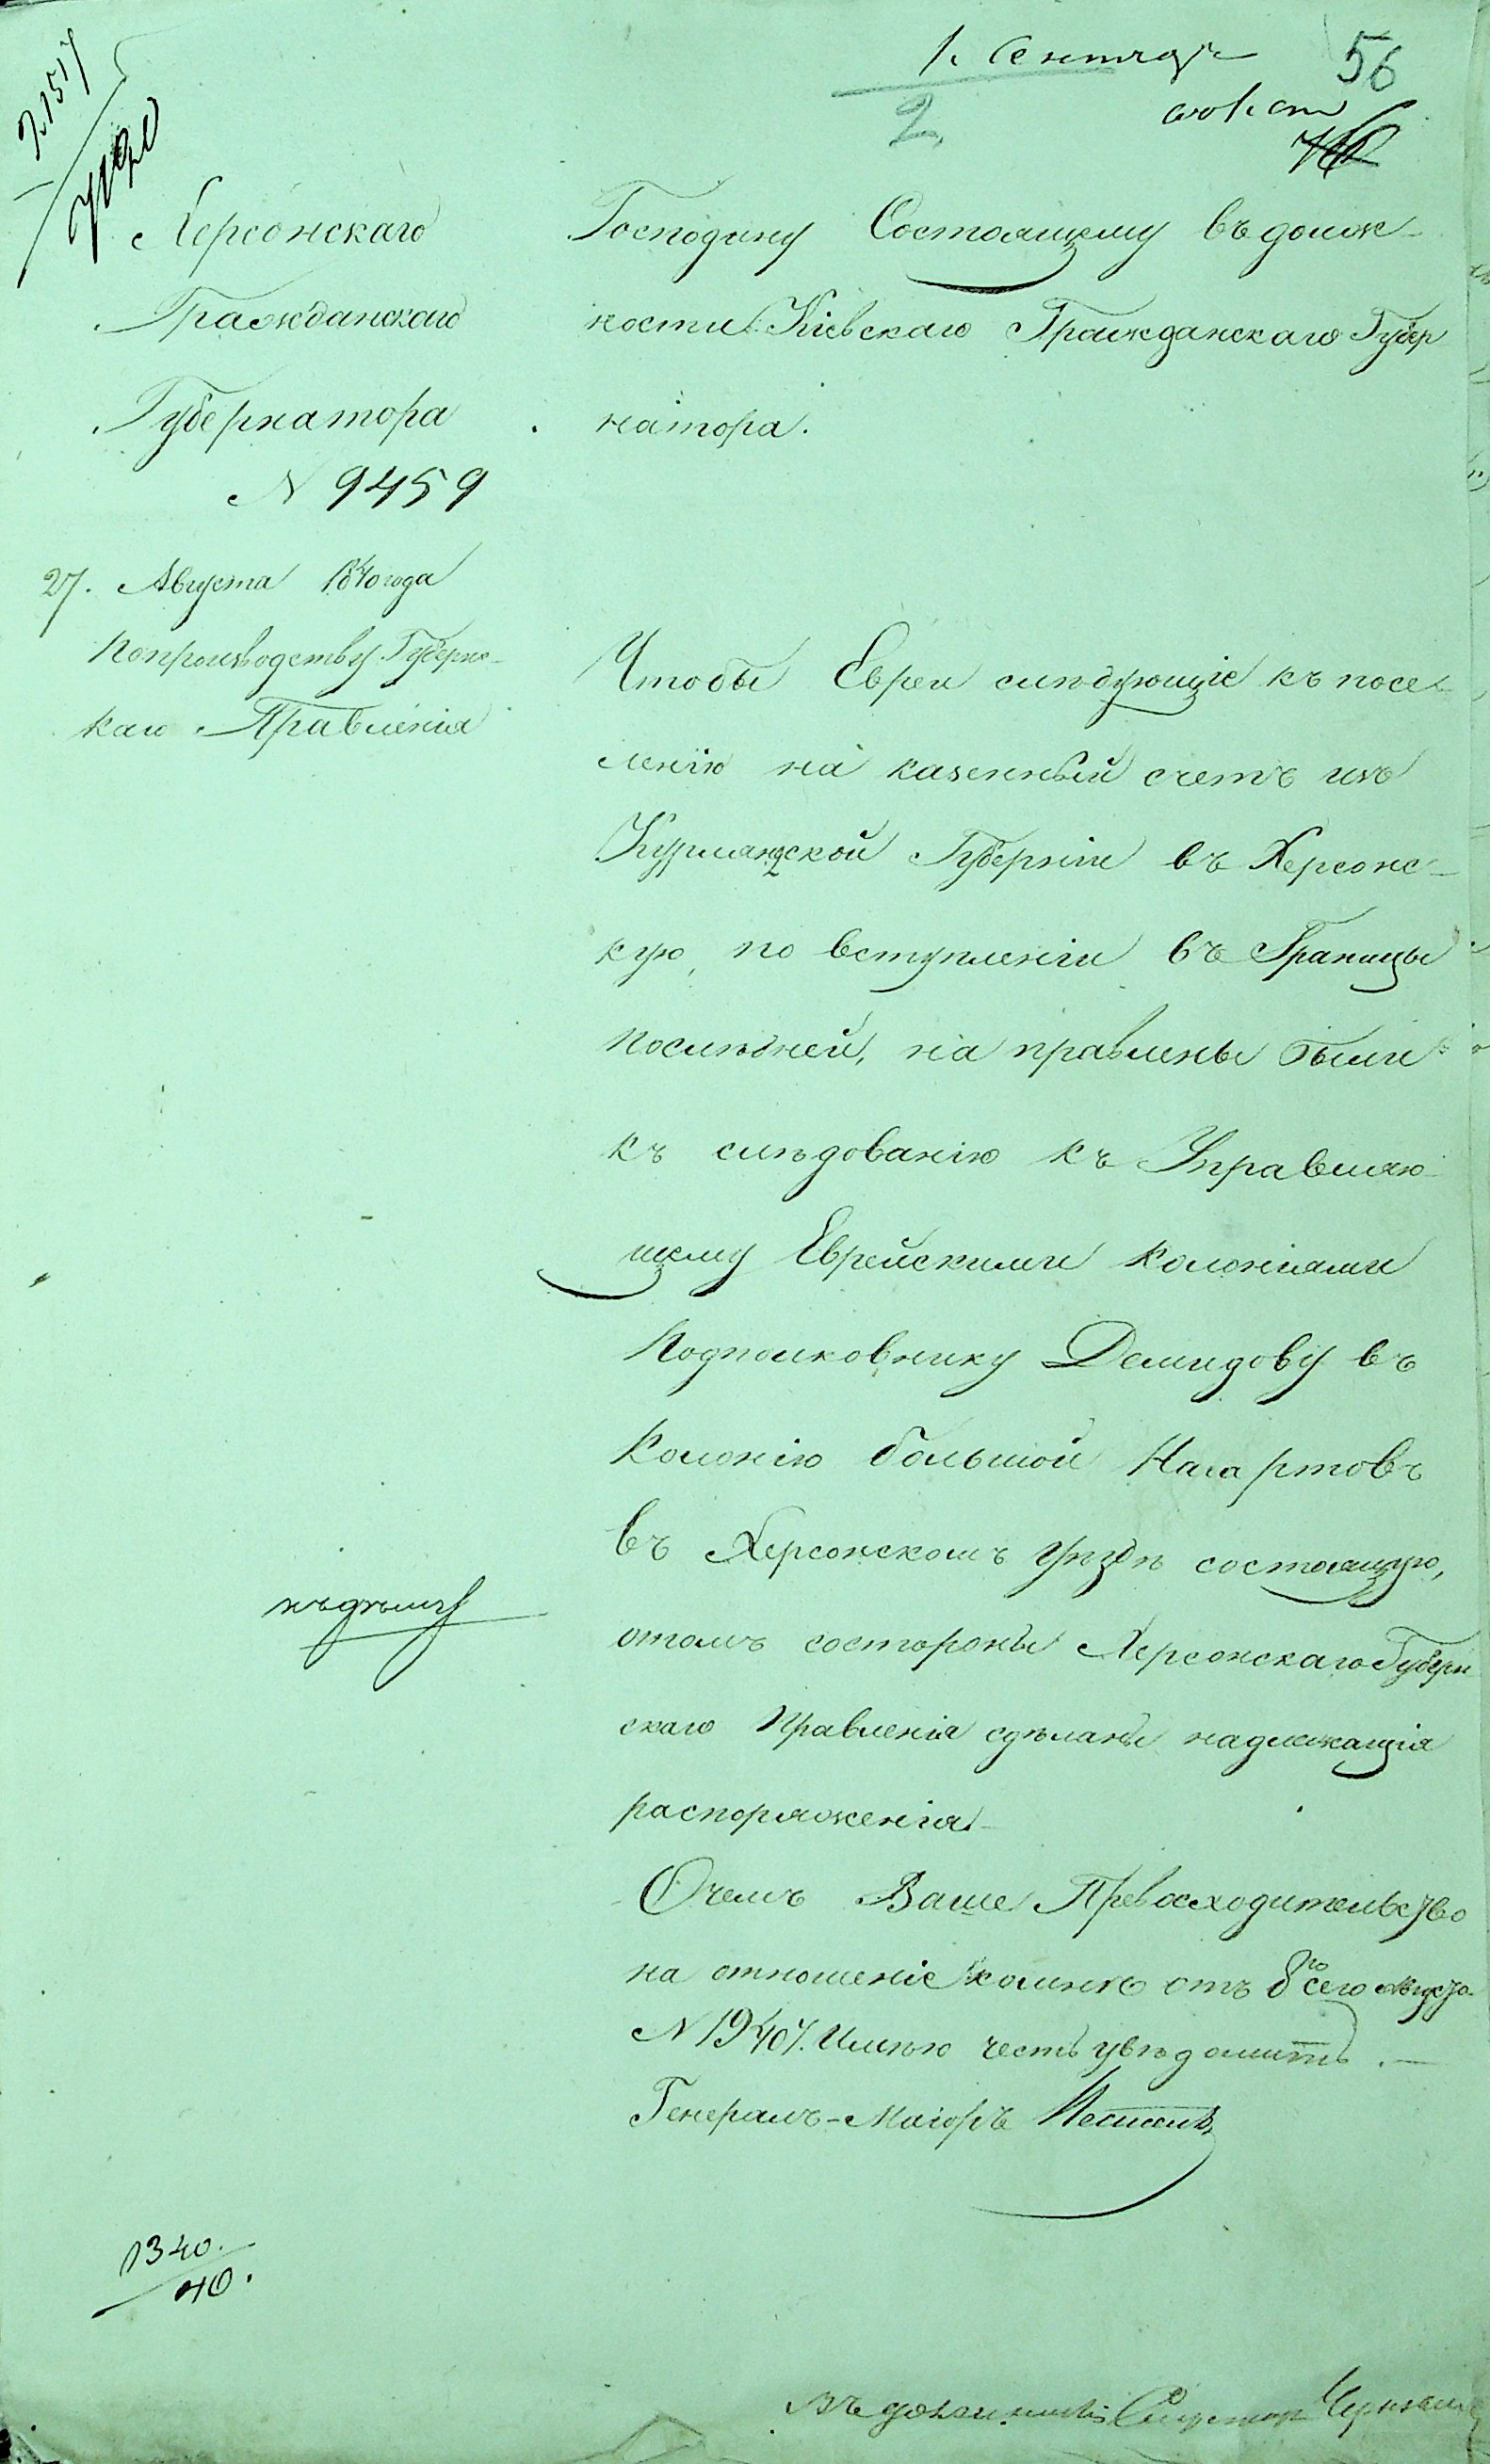 1. Сентября
56
2.
Херсонскаго
Гражданскаго
Губернатора
N 9459
27. Августа 1840 года
По производству Губернс-
каго Правленія
Господину Состоящему въ долж-
ности Кіевскаго Гражданскаго Губер
натора.
Чтобы Евреи слѣдующіе къ посе-
ленію на казенный счетъ изъ
Курляндской Губерніи въ Херсонс-
кую, по вступленіи въ Границы
послѣдней, на правлены были
къ слѣдованію къ Управляю-
щему Еврейскими Колоніями
Подполковнику Демидову въ
Колонію большой Нагартовъ
въ Херсонскомъ уѣздѣ состоящую,
отомъ состороны Херсонскаго Губерн
скаго Правленія сдѣланы надлежащія
распоряженія.
Очемъ Ваше Превосходительство
на отношеніе комнѣ отъ 8го сего Августа
N 19407. Имѣю честь увѣдомить.
Генералъ-Маіоръ
къ дѣлу
1340.
40.
Въ должности